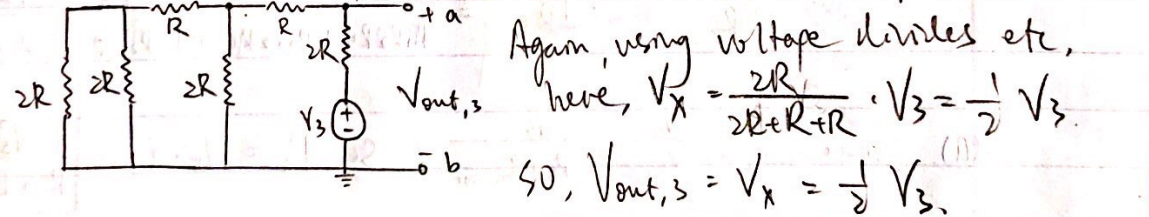 R
R
+ a
2R
2R
2R
2R
V3
+
-
Vout,3
- b
Again, using voltage divides etc,
here, Vx = 2R / 2R+R+R · V3 = 1/2 V3.
SO, Vout,3 = Vx = 1/2 V3.